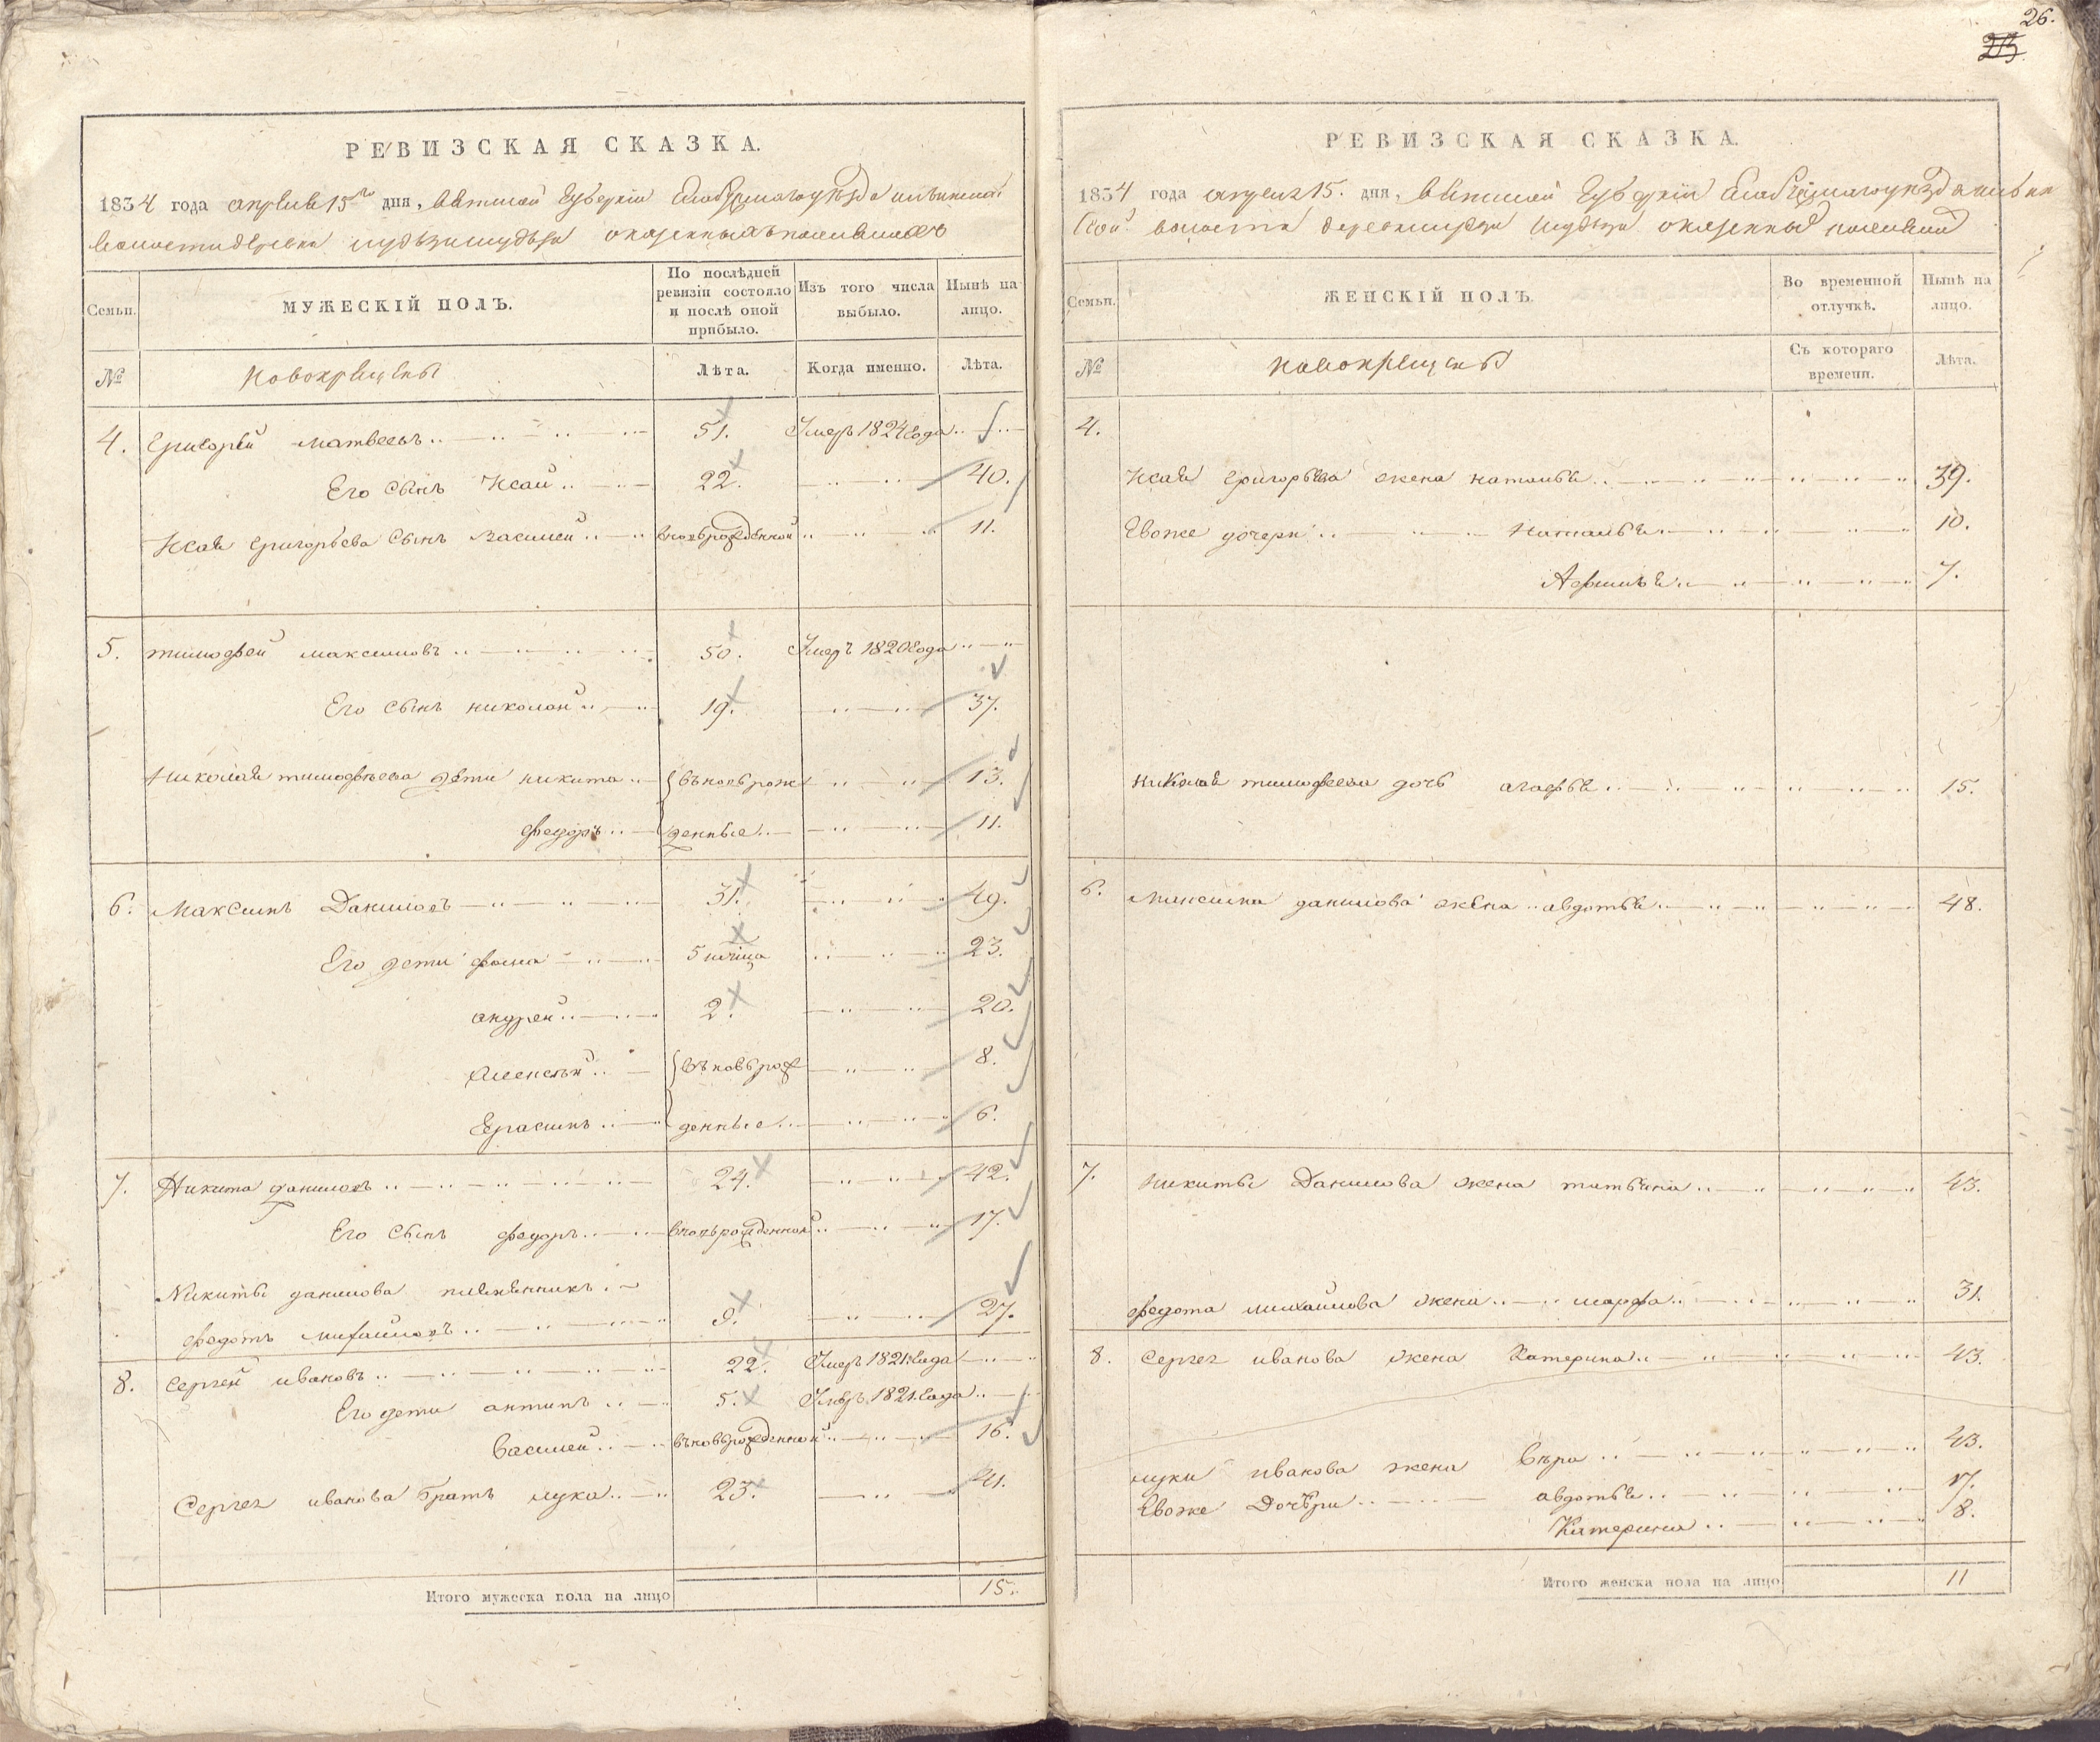 26.
РЕВИЗСКАЯ СКАЗКА.
1834 года апреля 15го дня, вятской губернии Елабужского уезда
волости деревни о казенныхъ поселянахъ
Семьи.
МУЖЕСКІЙ ПОЛЪ.
По послѣдней ревизіи состояло и послѣ оной прибыло.
Изъ того числа выбыло.
Нынѣ на лицо.
№
новокрещены
Лѣта.
Когда именно.
Лѣта.
4. Григорей матвеевъ 51. Умеръ 1824 года
Его сынъ Исай 22. 40.
Исая григорьева сынъ василей вновьрожденной 11.
5. тимофей максимовъ 50. Умеръ 1820 года
Его сынъ николай 19. 37.
Николая тимофѣева дети никита въновьрож 13.
федоръ денные 11.
6. Максимъ Даниловъ 31. 49.
Его дети фома 5 23.
андрей 2. 20.
Алексѣй въновьрож 8.
Герасимъ денные 6.
7. Никита даниловъ 24. 42.
Его сынъ федоръ вновьрожденной 17.
Никиты данилова племянникъ
федотъ михайловъ 9. 27.
8. Сергей ивановъ 22. Умеръ 1821 года
Его дети антипъ 5. Умеръ 1821 года
василей въновьрожденной 16.
Сергея иванова братъ лука 23. 41.
Итого мужеска пола на лицо 15.
РЕВИЗСКАЯ СКАЗКА.
1834 года апреля 15. дня, вятской губернии Елабужского уезда
ской волости деревни о казенных поселян
Семьи.
ЖЕНСКІЙ ПОЛЪ.
Во временной отлучкѣ.
Нынѣ на лицо.
№
новокрещены
Съ котораго времени.
Лѣта.
4.
Исая григорьева жена наталья 39.
Евоже дочери наталья 10.
Афимья 7.
Николая тимофеева дочь агафья 15.
6. Максима данилова жена авдотья 48.
7. Никиты Данилова жена татьяна 43.
федота михайлова жена марфа 31.
8. Сергея иванова жена Катерина 43.
луки иванова жена вѣра 43.
Евоже Дочери авдотья 17.
Катерина 8.
Итого женска пола на лицо 11